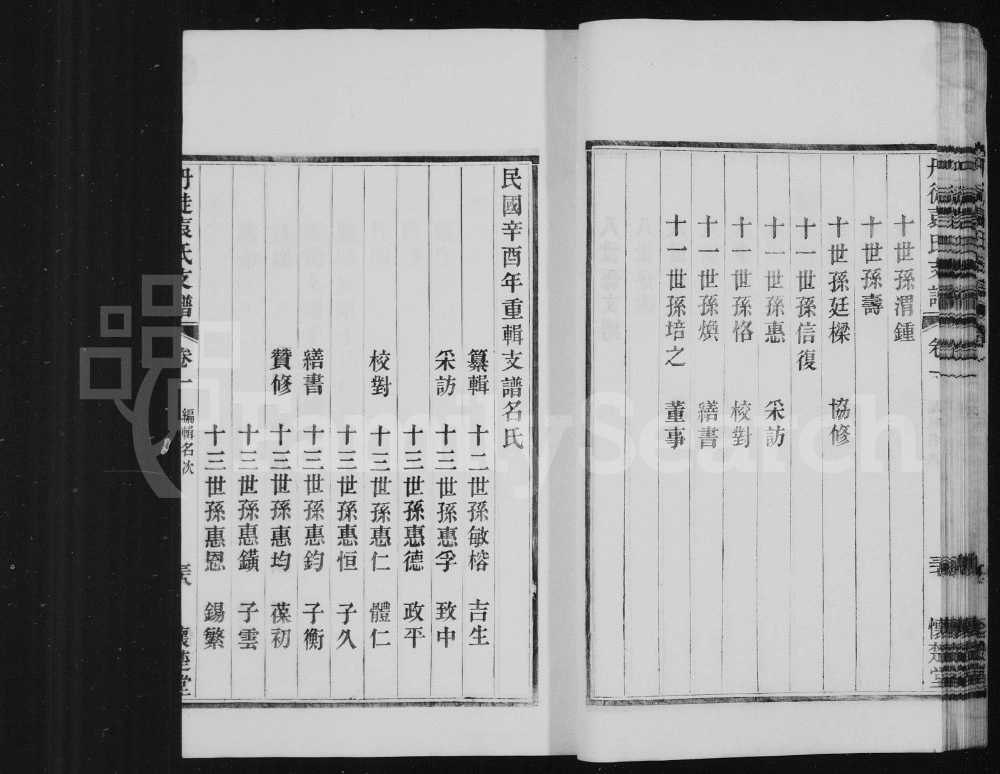 十世孫渭鍾
十世孫壽
十世孫廷樑 協修
十一世孫信復
十一世孫惠 采訪
十一世孫恪 校對
十一世孫煥 繕書
十一世孫培之 董事
懷楚堂
民國辛酉年重輯支譜名氏
纂輯 十二世孫敏榕 吉生
采訪 十三世孫惠孚 致中
十三世孫惠德 政平
校對 十三世孫惠仁 體仁
十三世孫惠恒 子久
繕書 十三世孫惠鈞 子衡
贊修 十三世孫惠均 葆初
十三世孫惠鐄 子雲
十三世孫惠恩 錫繁
丹徒袁氏支譜 卷一 編輯名次
FamilySearch